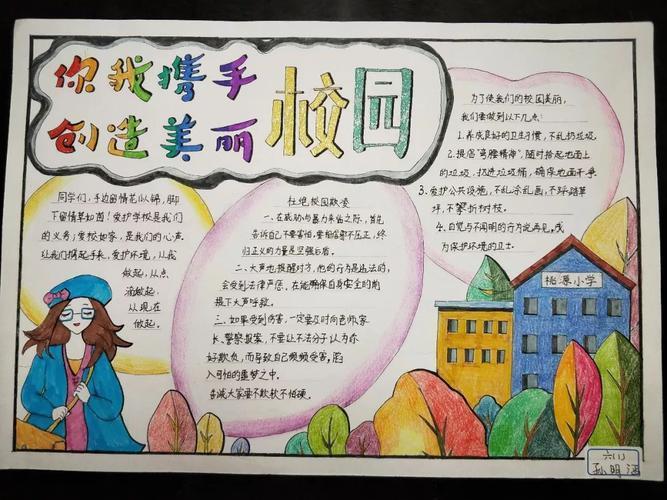 你我携手
创造美丽
校园
同学们,手边留情花似锦,脚
下留情草如茵!爱护学校是我们
的义务;爱校如家,是我们的心声。
让我们携起手来,爱护环境,从我
做起,从点
滴做起,
从现在
做起。
杜绝校园欺凌
一、在威胁与暴力来临之际,首先
告诉自己不要害怕。要相信邪不压正,终
归正义的力量是坚强后盾。
二、大声地提醒对方,他的行为是违法的,
会受到法律严惩。在能确保自身安全的前
提下大声呼救。
三、如果受到伤害,一定要及时向老师家
长、警察报案,不要让不法分子认为你
好欺负,而导致自己频频受害,陷
入可怕的噩梦之中。
告诫大家要不欺软不怕硬。
为了使我们的校园美丽,
我们要做到以下几点:
1.养成良好的卫生习惯,不乱扔垃圾。
2.提倡"弯腰精神",随时拾起地面上
的垃圾,扔进垃圾桶,确保地面干净
3.爱护公共设施,不乱涂乱画,不踩踏草
坪,不攀折树枝。
4.自觉与不文明的行为说再见。成
为保护环境的卫士。
桃源小学
六(1)
孙明